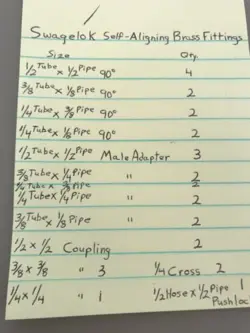 Swagelok Self-Aligning Brass Fittings
Size Qty.
1/2 Tube x 1/2 Pipe 90° 4
3/8 Tube x 1/8 Pipe 90° 2
1/4 Tube x 3/8 Pipe 90° 2
1/4 Tube x 1/8 Pipe 90° 2
1/2 Tube x 1/2 Pipe Male Adapter 3
3/8 Tube x 1/4 Pipe " 2
1/4 Tube x Pipe
1/4 Tube x 1/4 Pipe " 2
3/8 Tube x 1/8 Pipe " 2
1/2 x 1/2 Coupling 2
3/8 x 3/8 " 3 1/4 Cross 2
1/4 x 1/4 " 1 1/2 Hose x 1/2 Pipe 1
Pushloc